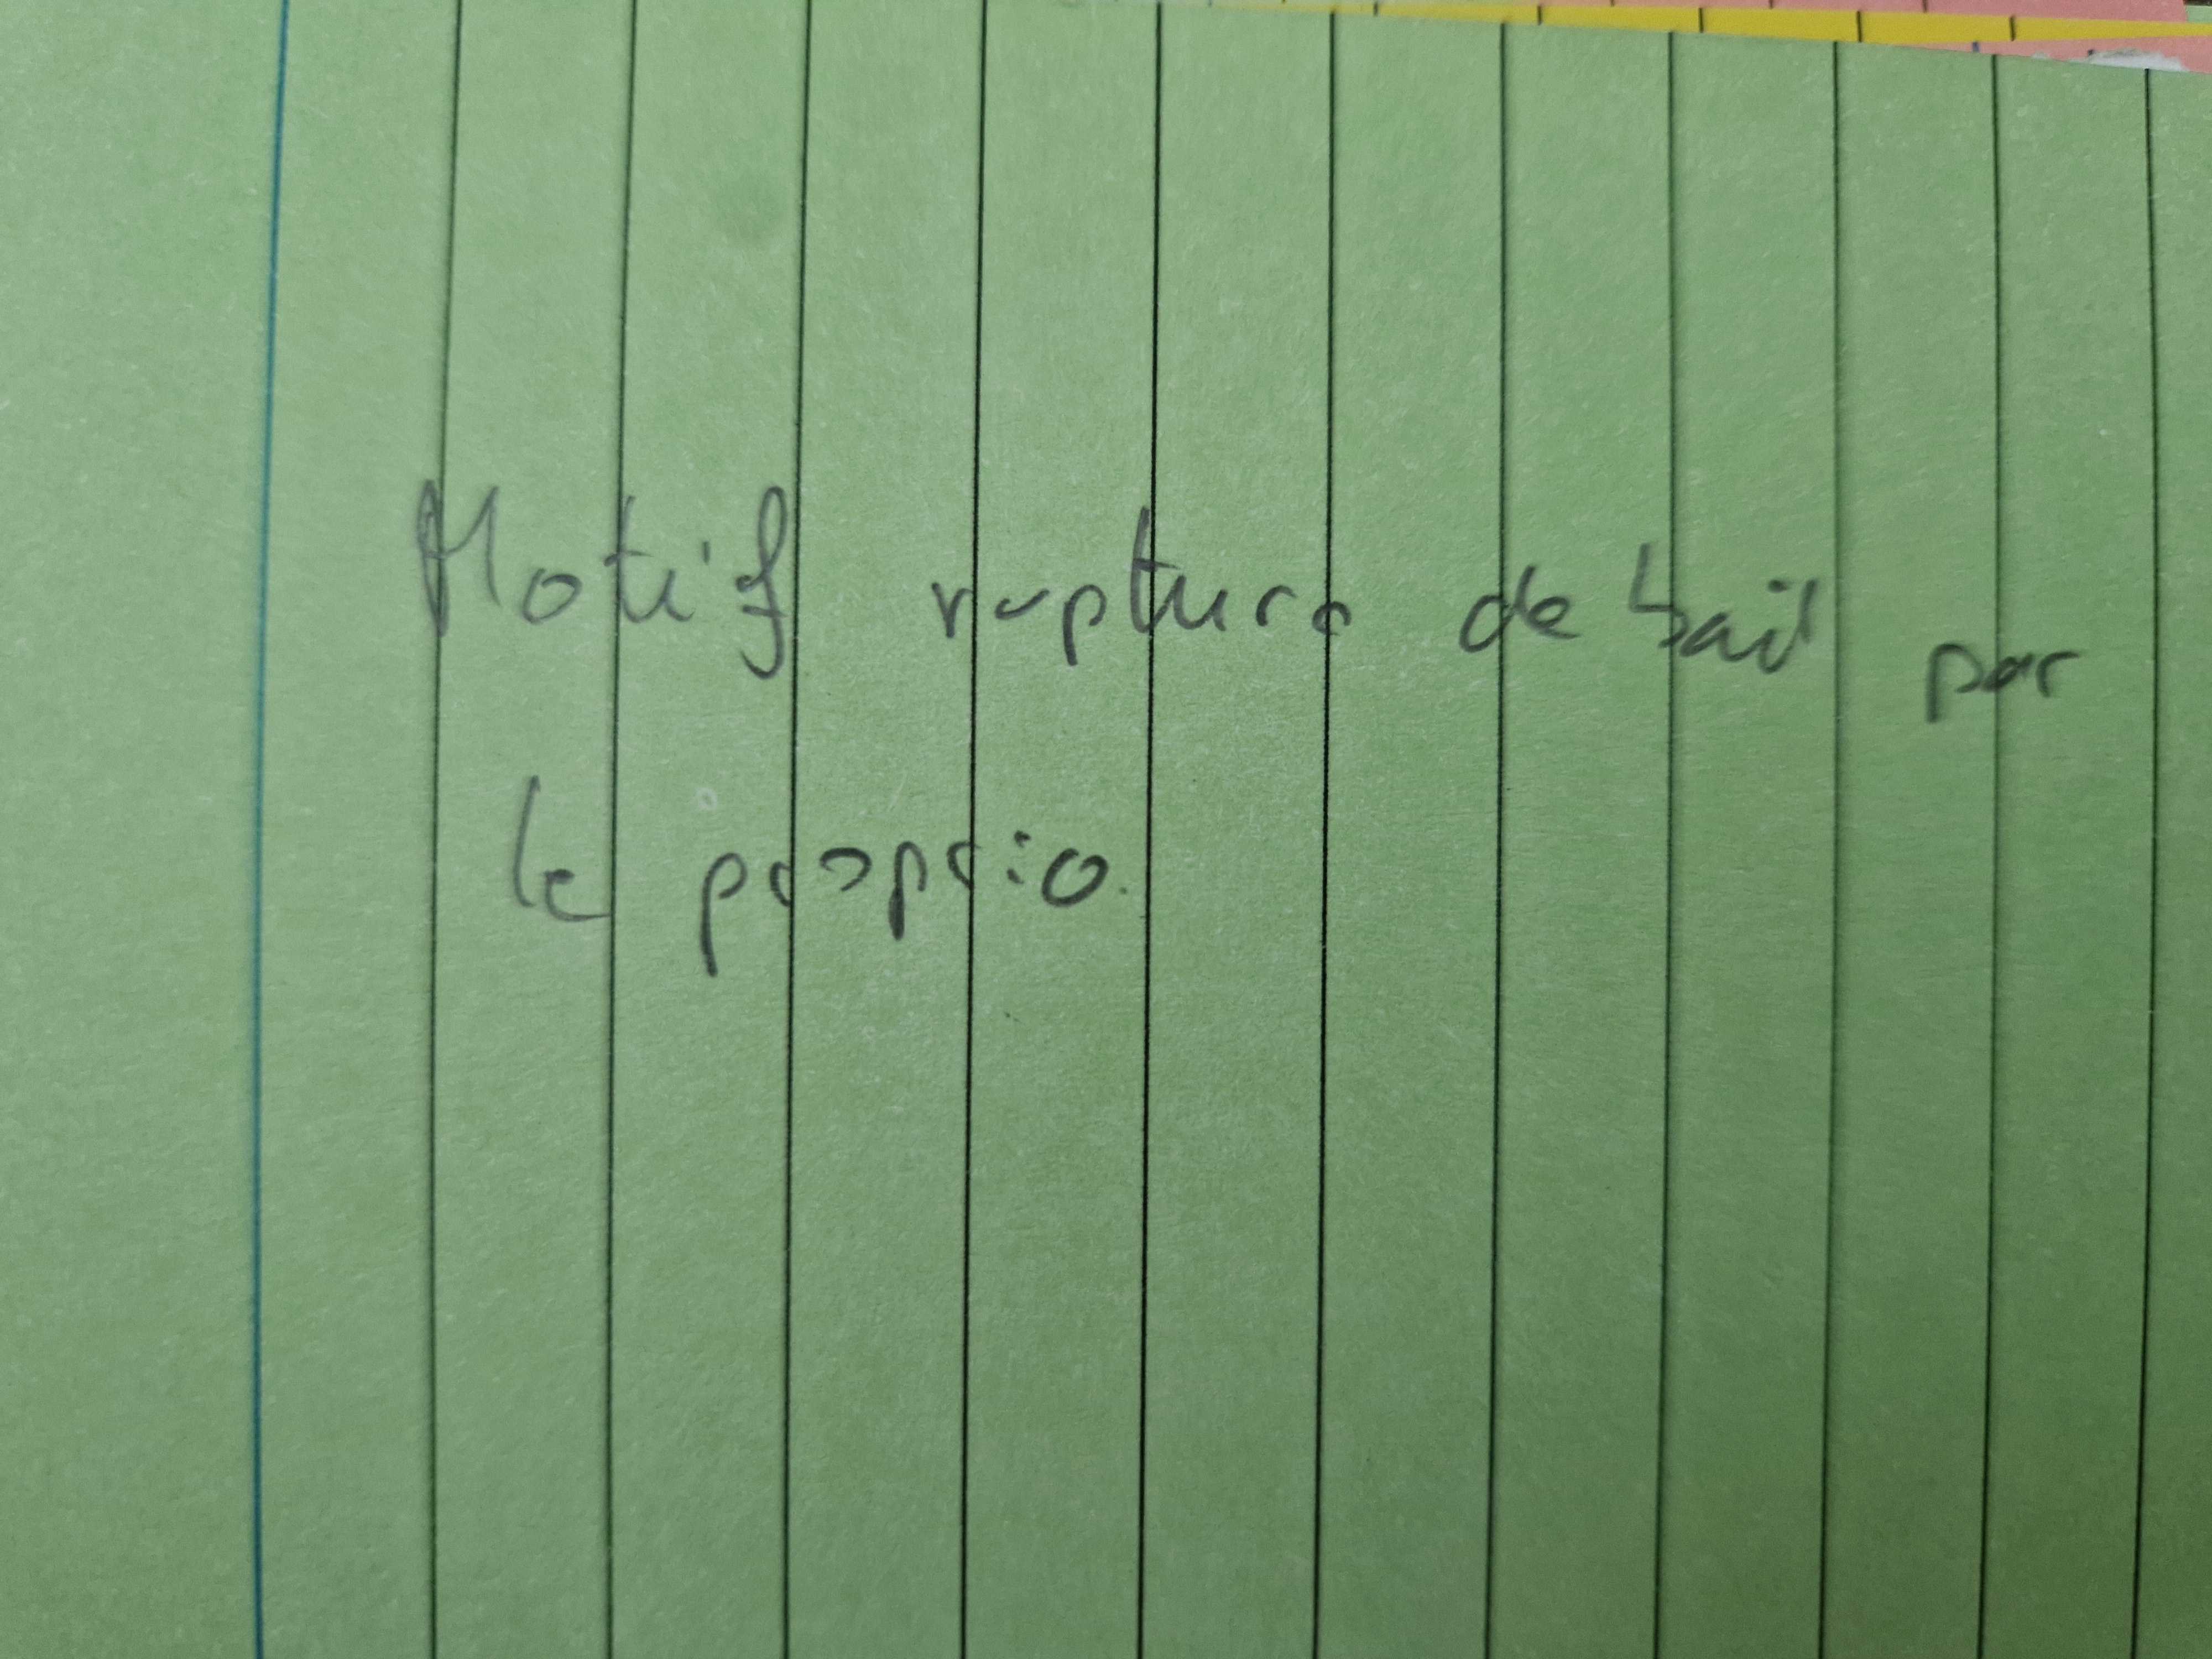 Motif rupture de bail par
le proprio.